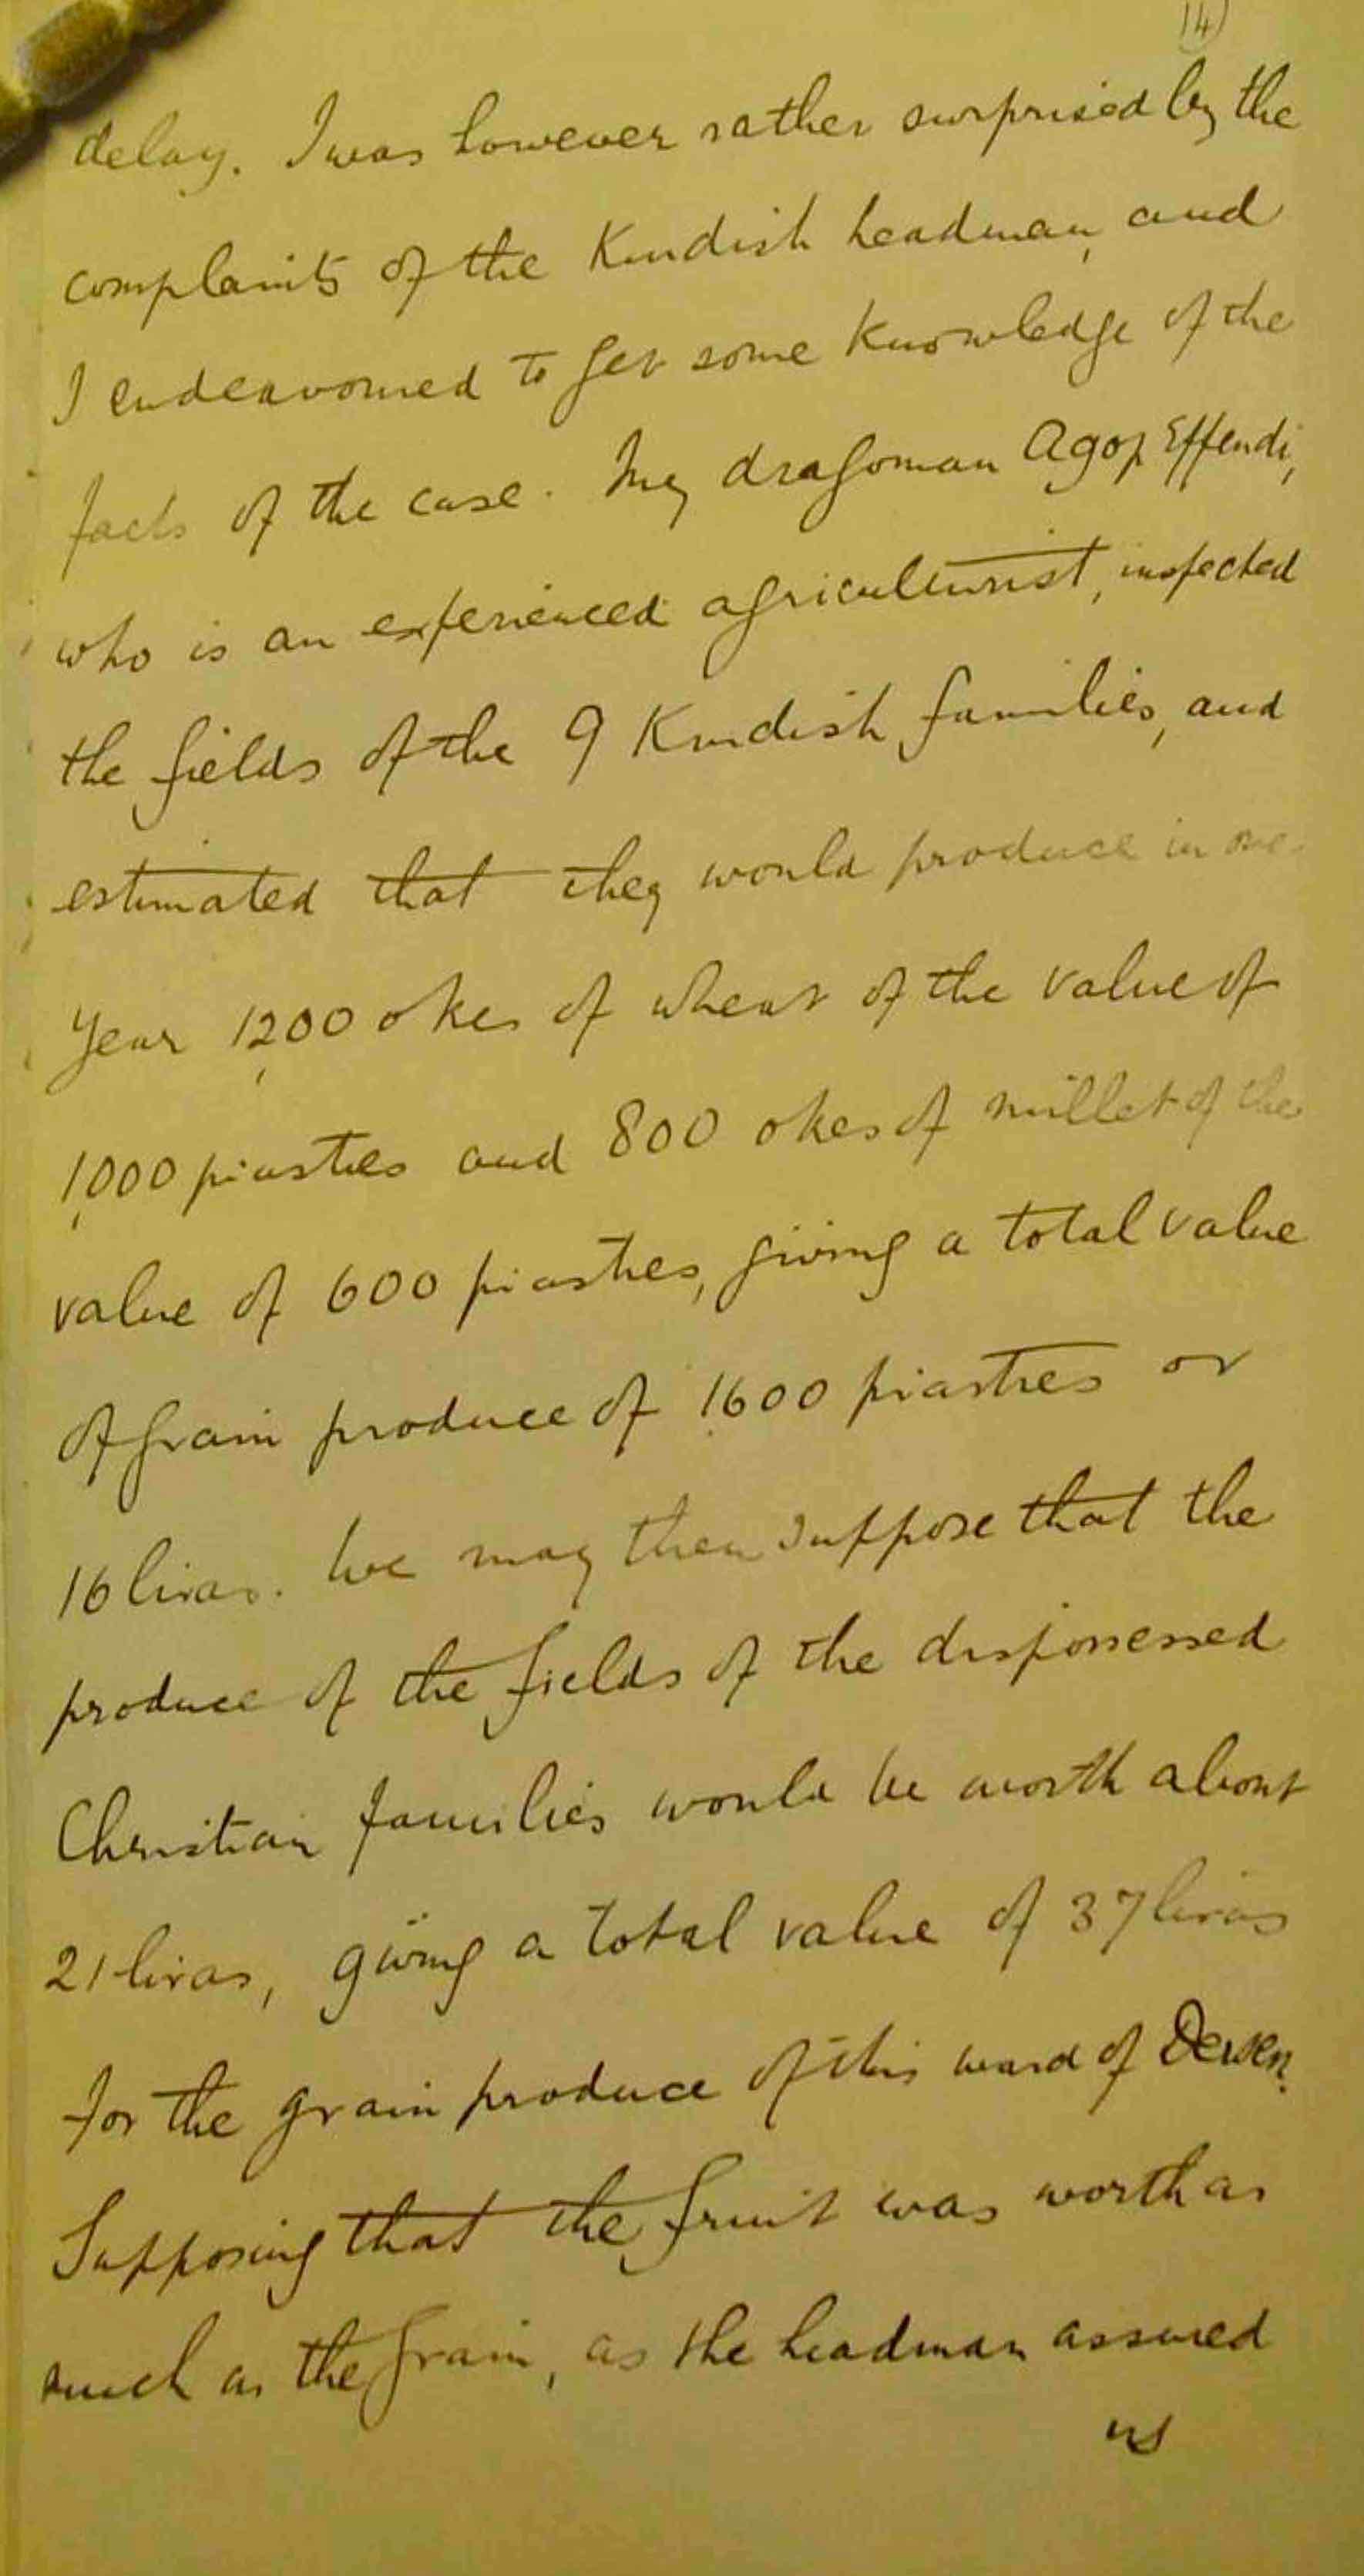 14)
delay. I was however rather surprised by the
complaints of the Kurdish headman, and
I endeavoured to get some knowledge of the
facts of the case. My dragoman Agop Effendi,
who is an experienced agriculturist, inspected
the fields of the 9 Kurdish families, and
estimated that they would produce in one
year 1,200 okes of wheat of the value of
1,000 piastres and 800 okes of millet of the
value of 600 piastres, giving a total value
of grain produce of 1,600 piastres or
16 liras. We may then suppose that the
produce of the fields of the dispossessed
Christian families would be worth about
21 liras, giving a total value of 37 liras
for the grain produce of this ward of
Supposing that the fruit was worth as
much as the grain, as the headman assured
us